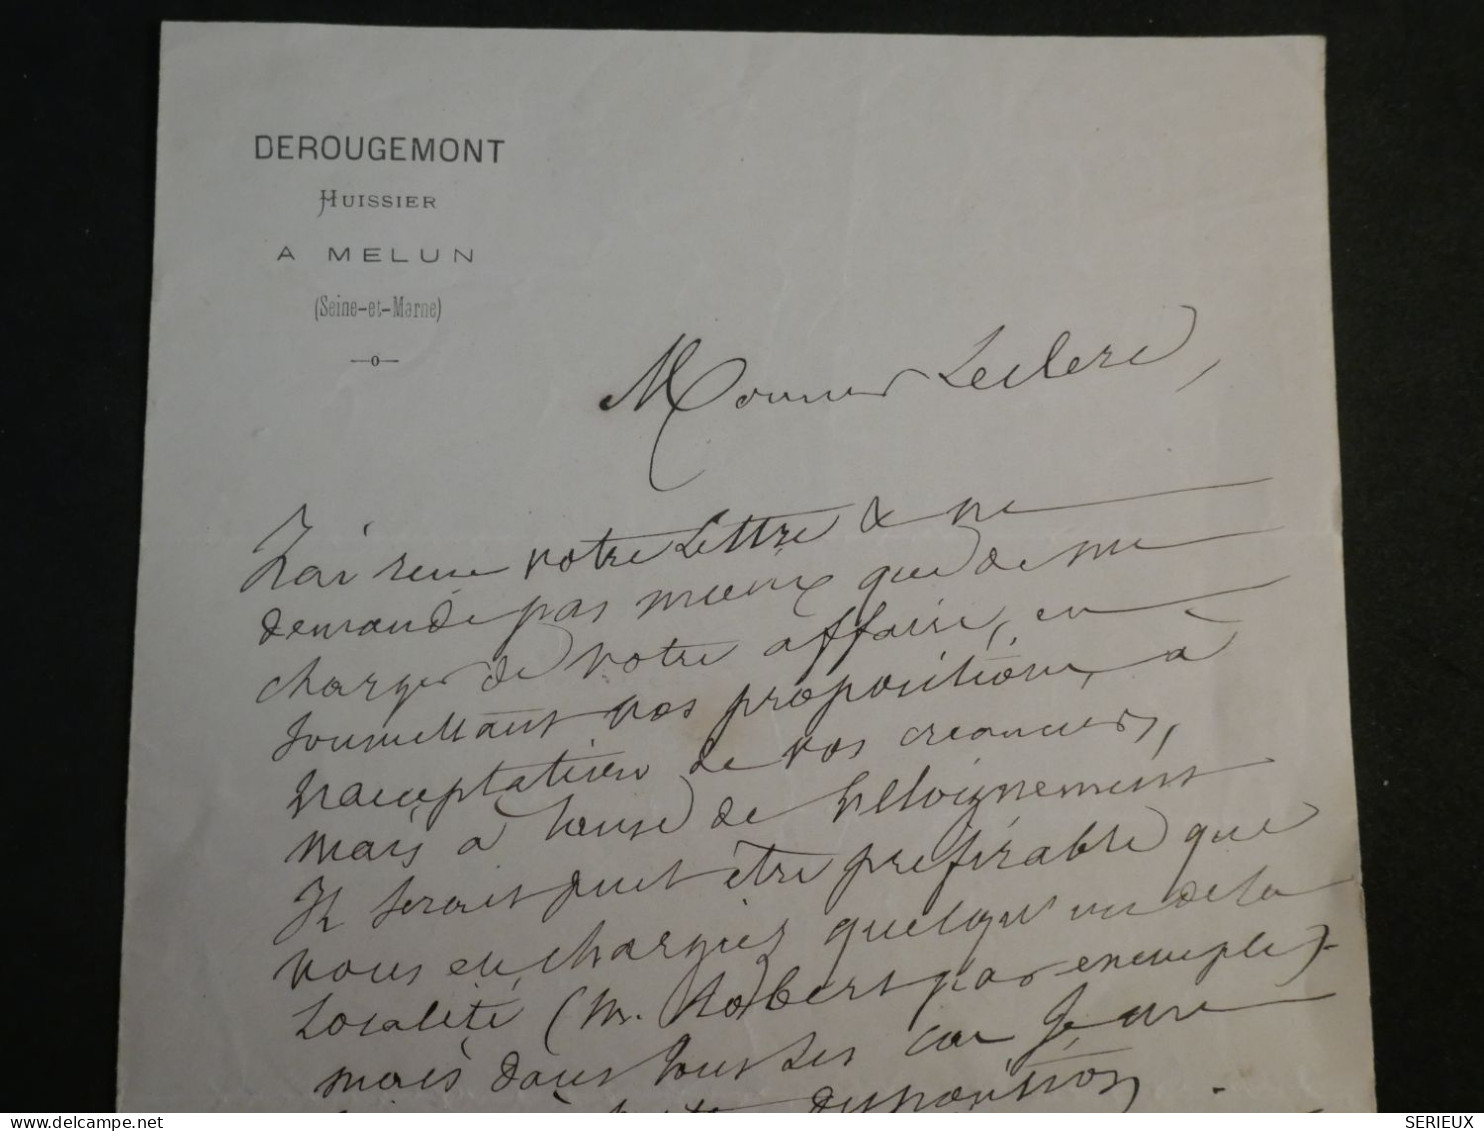 DEROUGEMONT
HUISSIER
A MELUN
(Seine-et-Marne)
Monsieur Leclerc,
J'ai reçu votre lettre & ne
demande pas mieux que de me
charger de votre affaire, en
soumettant vos propositions, à
l'acceptation de vos créanciers,
mais à cause de l'éloignement
Il serait peut être préférable que
vous en chargiez quelqu'un de la
Localité (M. Robert par exemple)
mais dans tous les cas je me
disposition
SERIEUX